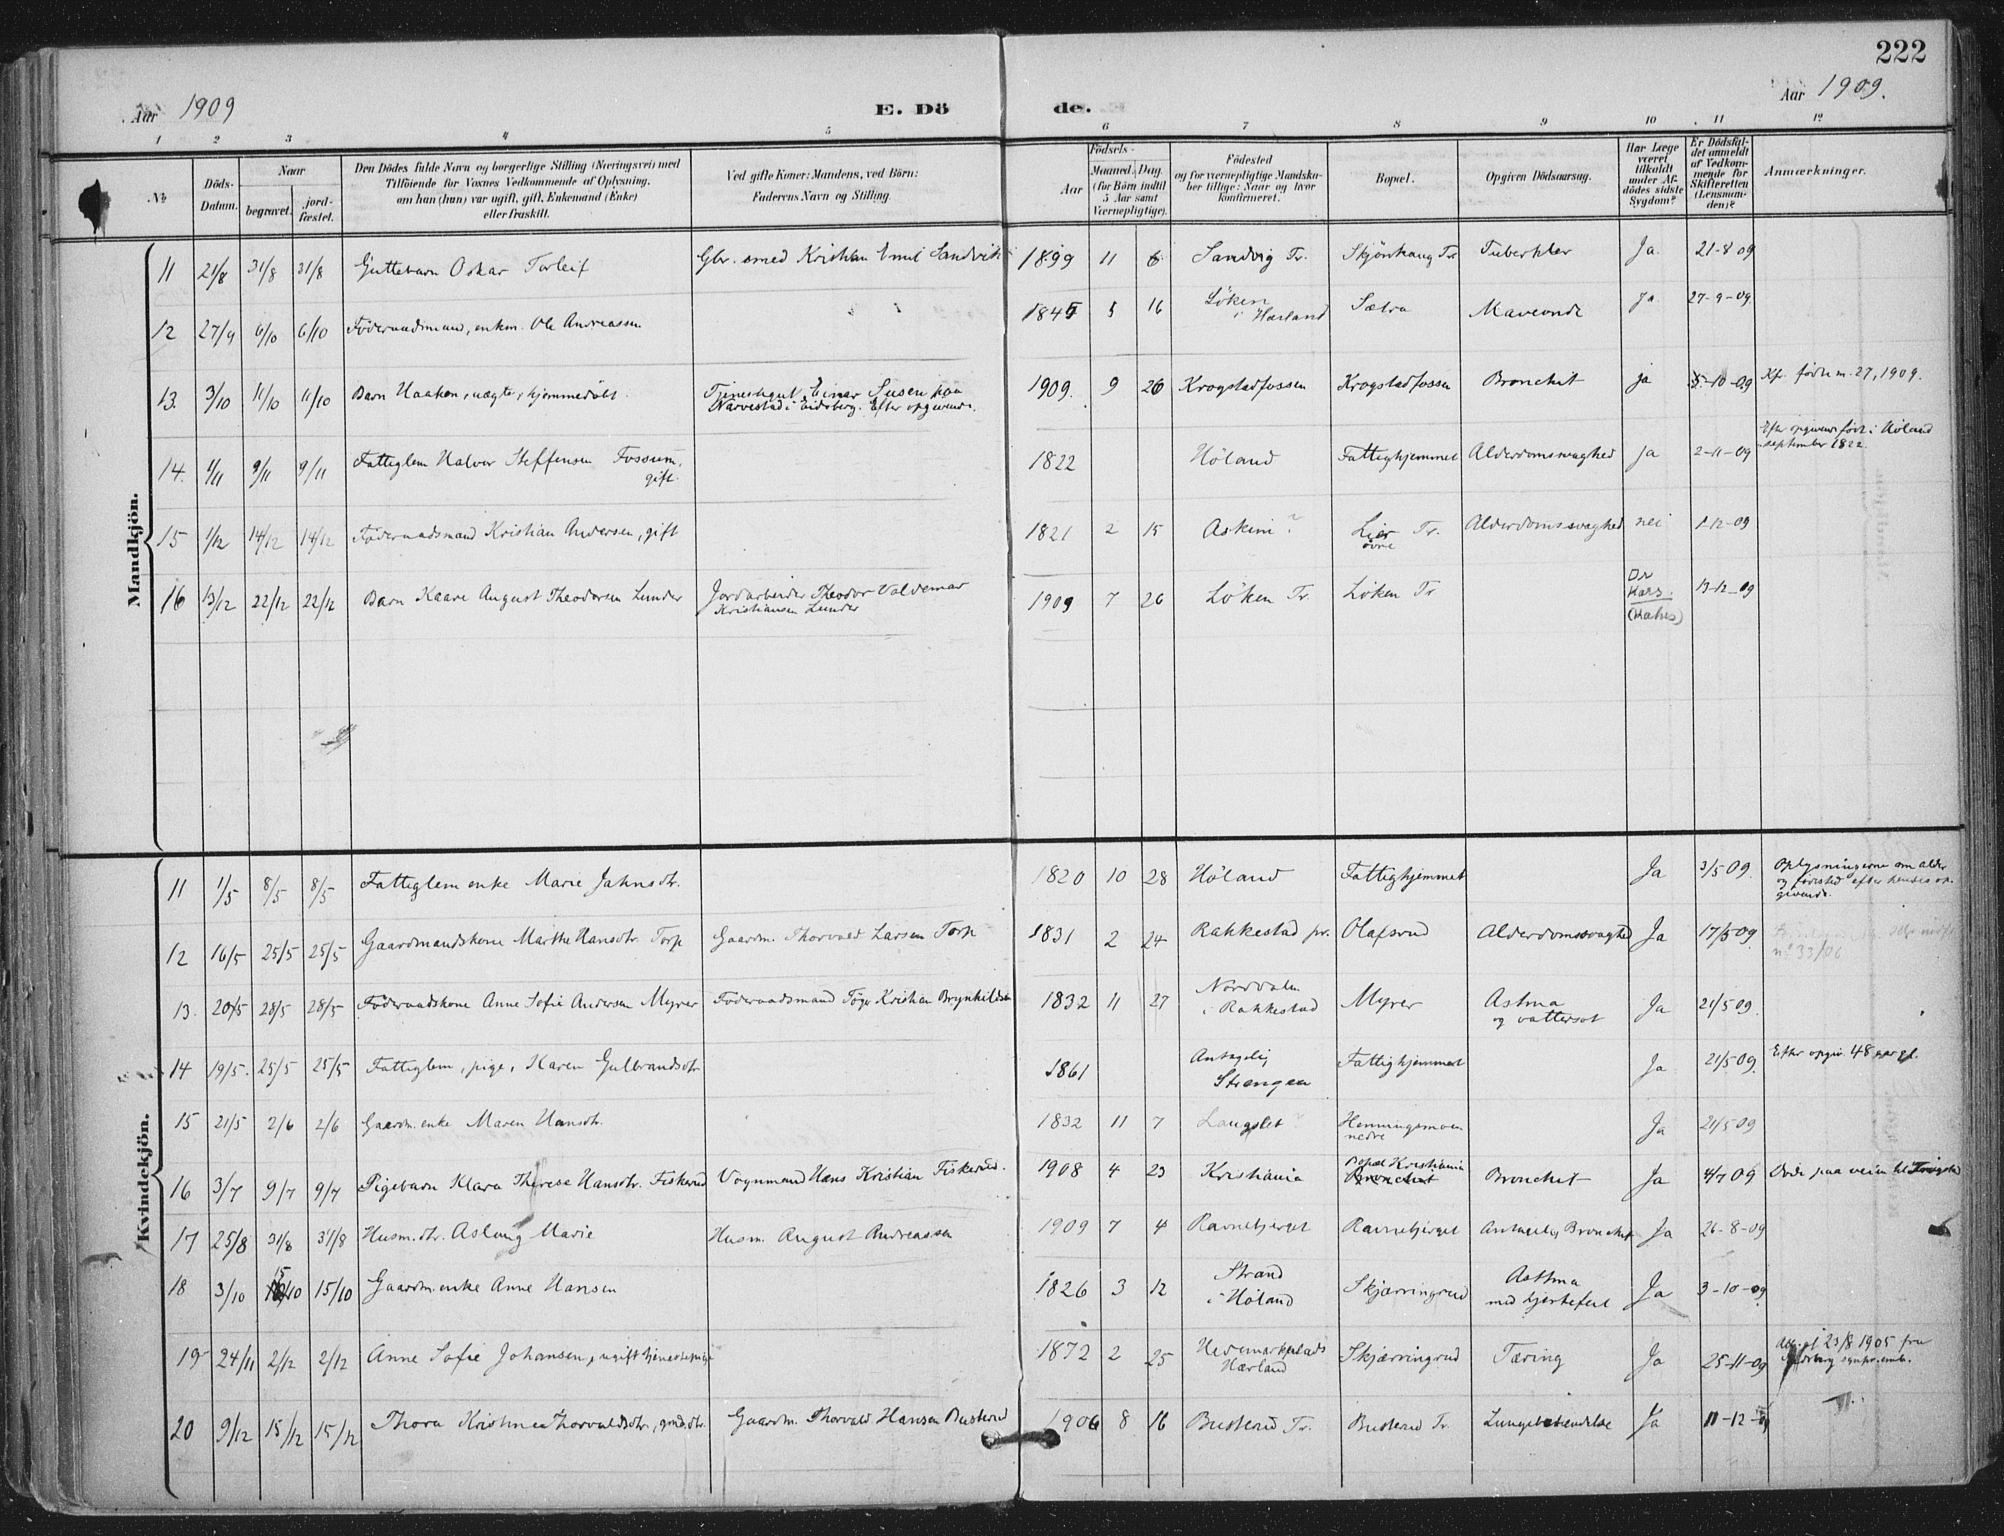 222
Aar 1909
E. Dö
de.
Aar 1909.
1 2 3 4 5 6 7 8 9 10 11 12
№
Döds-Datum.
Naar
begravet.
jordfæstet.
Den Dödes fulde Navn og borgerlige Stilling (Næringsvei) med
Tilföiende for Voxnes Vedkommende af Oplysning,
om han (hun) var ugift, gift, Enkemand (Enke)
eller fraskilt.
Ved gifte Koner: Mandens, ved Börn:
Faderens Navn og Stilling.
Födsels-
Aar
Maaned. Dag.
(for Börn indtil
5 Aar samt
Værnepligtige).
Födested
og for værnepligtige Mandskaber tillige: Naar og hvor
konfirmeret.
Bopæl.
Opgiven Dödsaarsag.
Har Læge
været
tilkaldt
under Afdödes sidste
Sygdom?
Er Dödsfaldet anmeldt
af Vedkommende for
Skifteretten
(Lensmanden)?
Anmærkninger.
Mandkjön.
11 21/8 31/8 31/8 Guttebarn Oskar Torleif Gbr. smed Kristian Emil Sandvik 1899 11 6 Sandvig Tr. Skjönhaug Tr. Tuberkler Ja. 21-8 09
12 27/9 6/10 6/10 Föderaadsmand, enkm. Ole Andreassen 5 16 Löken i Hærland Sætra Maveonde ja. 27-9-09
13. 3/10 11/10 11/10 Barn Haakon, uægte, hjemmedöbt. Tjenestegut Einar paa Narvestad i Eidsberg. Efter opgivende. 1909. 9 26 Krogstadfossen Krogstadfossen Bronchit ja 5-10-09 Kfr. födte n. 27, 1909.
14. 1/11 9/11 9/11 Fatteglem Halvor Steffensen Fossum, gift. 1822 Höland Fattighjemmet Alderdomssvaghed ja 2-11-09 Efter opgivende födt i Höland i september 1822.
15 1/12 14/12 14/12 Föderaadsmand Kristian Andersen, gift 1821 2 15 Askim? Lier övre Tr. Alderdomssvaghed nei 1-12-09
16 13/12 22/12 22/12 Barn Kaare August Theodorsen Lunder Jordarbeider Theodor Valdemar Kristiansen Lunder 1909 7 26 Löken Tr. Löken Tr Dr 13-12-09
Kvindekjön.
11 1/5 8/5 8/5 Fatteglem enke Marie Jahnsdtr. 1820 10 28 Höland Fattighjemmet Ja 3/5 09. Oplysningerne om alder og födested efter hendes opgivende.
12 16/5 25/5 25/5 Gaardmandskone Marthe Hansdtr. Torp Gaardm. Thorvald Larsen Torp 1831 2 24 Rakkestad pr. Olafsrud Alderdomssvaghed Ja 17/5 09 no 33/06
13. 20/5 28/5 28/5 Föderaadskone Anne Sofie Andersen Myrer Föderaadsmand Töger Kristian Brynhildsen 1832 11 27 i Rakkestad Myrer Astma og vattersot Ja 21/5 09.
14 19/5. 25/5 25/5 Fatteglem, pige, Karen Gulbrandsdtr. 1861 Antagelig Strengen Fattighjemmet Ja 21/5 09. Efter opgiv. 48 aar gl.
15 21/5 2/6 2/6 Gaardm. enke Maren Hansdtr. 1832 11 7 Langslet? Henningsmoen nedre Ja 21/5 09
16 3/7 9/7 9/7 Pigebarn Klara Therese Hansdtr. Fiskerud Vognmand Hans Kristian Fiskerud. 1908 4 23 Kristiania Bopæl Kristiania Bronchit Bronchit Ja 4/7 09 Döde paa veien til Trögstad
17 25/8 31/8 31/8 Husm. dtr. Aslaug Marie Husm. August Andreassen 1909 7 4 Ravnebjerget Ravnebjerget Antagelig Bronchit Ja 26-8-09
18 3/10 15/10 15/10 Gaardm. enke Anne Hansen 1826 3 12 Strand i Höland Skjærringrud Asthma med hjertefeil Ja 3-10-09
19 24/11 2/12 2/12 Anne Sofie Johansen, ugift tjenestepige 1872 2 25 Hærland Skjærringrud Tæring Ja 25-11-09 23/8 1905 fra
20 9/12 15/12 15/12 Thora Kristine Thorvaldsdtr, gmds.dtr. Gaardm. Thorvald Hansen Busterud 1906 8 16 Busterud Tr. Busterud Tr. Lungebetændelse Ja 11-12-09